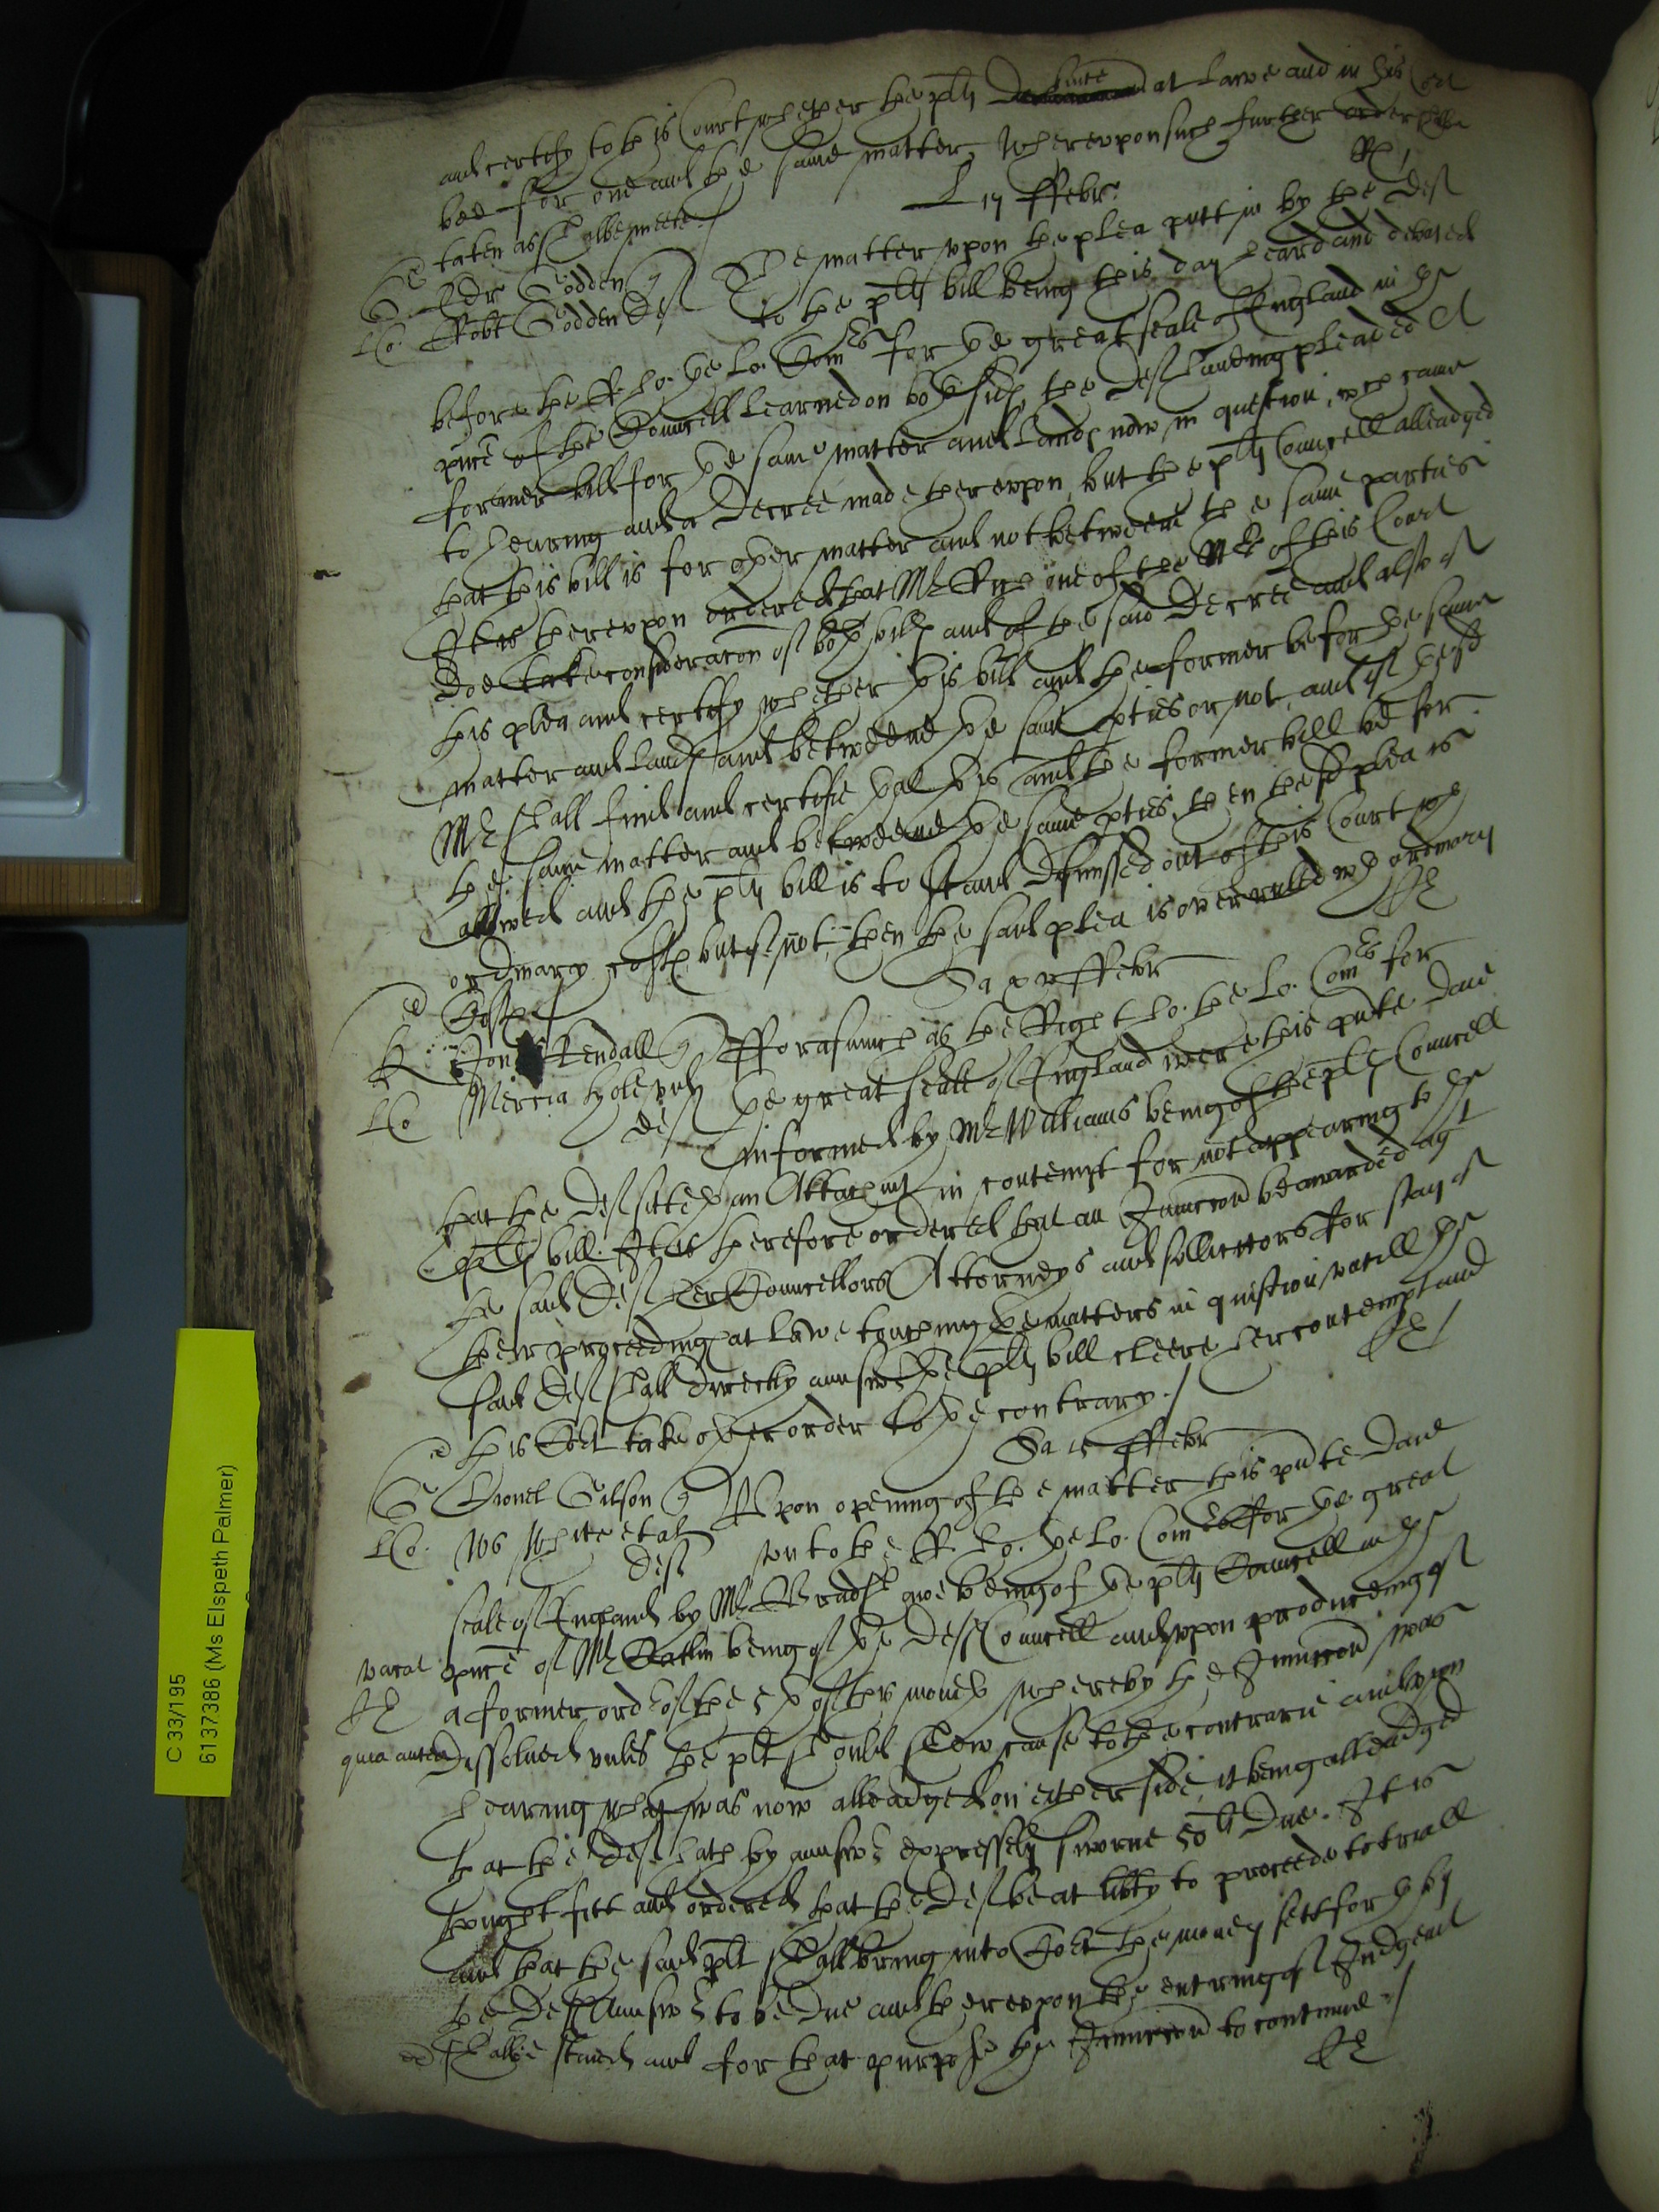 and certify to this Court whether the plt sue at Lawe and in this Cort
bee for one and the same matter, Whereupon such further order shall
taken as shalbe meete
L 17 ffebr
Edr Godden q
Robt Godden Def
The matter vpon the plea putt in by the Def
to the plts bill being this day heard and debated
before the R. ho. the Lo. Comrs for the great seale of England in the
pnce of the Councell Learned on both sides the Def haveing pleaded A
former bill for the same matter and Lands now in question, wch came
to hearing and a Decree made therevpon, but the plts Councell alleadged
that this bill is for other matter and not betweene the same parties
It is therevpon ordered that Mr Rich one of the Mrs of this Court
doe take consideracon of both bills and of the said Decree and also of
this plea and certify whether this bill and the former be for the same
matter and Lands and betweene the same pties or not, and if the sd
Mr shall finde and certifie that this and the former bill be for
the same matter and betweene the same pties, then the sd plea is
allowed and the plts bill is to stand dismissed out of this Court wth
ordinary costs, but if not, then the said plea is overruled wth ordinary
Costs
Sa xv ffebr
Jon Kendall q
Mercia Hole vid
def
Lo
fforasmuch as the Right ho. the Lo. Comrs for
the great seale of England were this pnte daie
informed by Mr Williams being of the plts Councell
that the Def sitteth an Attachmt in contempt for not appearing to the
plts bill. It is therefore ordered that an Iniuncon be awarded agt
the said Def her Councellors Attorneys and sollicitors for stay of
their proceedings at Lawe touching the matters in question vntill the
said Def shall directly answr the plts bill cleere her contempt and
this Cort take other order to the contrary
Sa 15 ffebr
Lionel Gilson q
Wo White et al
Defts
Lo.
Vpon opening of the matter this pnte daie
vnto the R. ho. the Lo. Comrs for the great
seale of England by Mr Bradshawe being of the plts Councell in the
vacat
pnce of Mr Catlin being of the Defts Councell and vpon produceing of
a former ordr of the 5th of this moneth whereby the Iniuncon was
quia antea
dissolued vnles the plt should shew cause to the contrarie and vpon
hearing what was now alleadged on either side, it being alleadged
that the Deft hath by answr expressely sworne 50li due. It is
thought fitt and ordered that the Def be at libty to proceede to triall
and that the said plt shall bring into Cort the money sett forth by
the Defts Answr to be due and therevpon the entring of Iudgemt
shalbe staied and for that purpose the Iniuncon to continue
C 33/195
6137386 (Ms Elspeth Palmer)